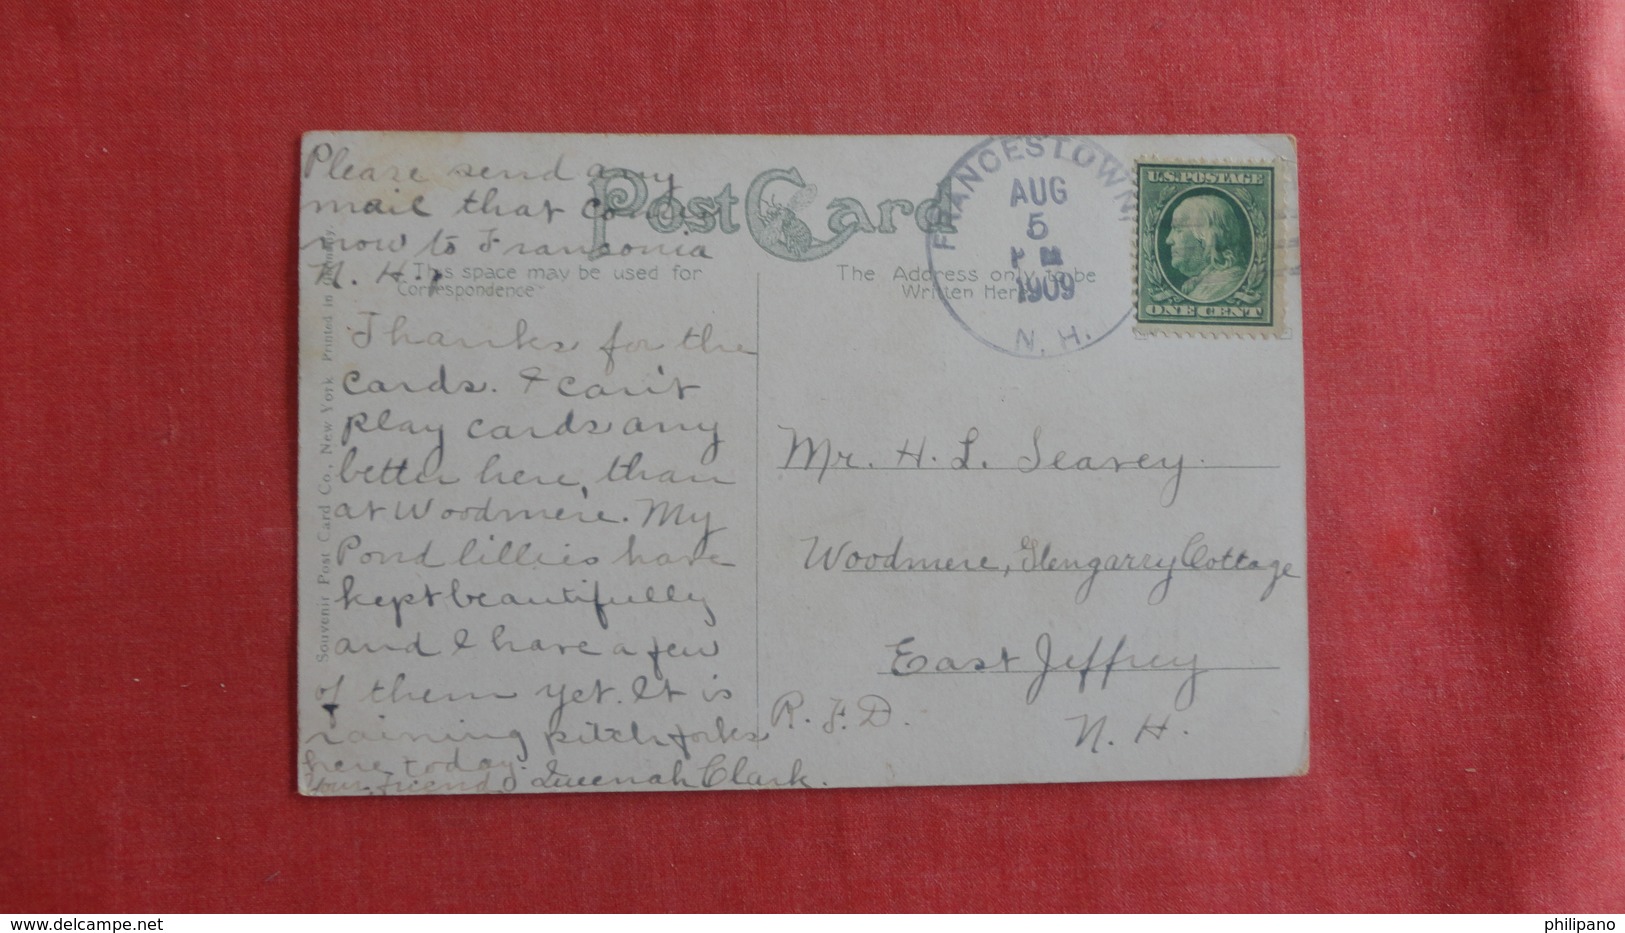 Please send any
mail that comes
now to Franconia
N. H.
Post Card
This space may be used for
Correspondence
The Address only to be
Written Here
FRANCESTOWN
AUG
5
P M
1909
N. H.
U.S. POSTAGE
ONE CENT
Thanks for the
cards. I can't
play cards any
better here, than
at Woodmere. My
Pond lillies have
kept beautifully
and I have a few
of them yet. It is
raining pitch forks
here today.
Your friend, Queenah Clark.
Mr. H. L. Seavey.
Woodmere, Glengarry Cottage
East Jeffrey
R. F. D.
N. H.
Souvenir Post Card Co., New York. Printed in Germany.
philipano